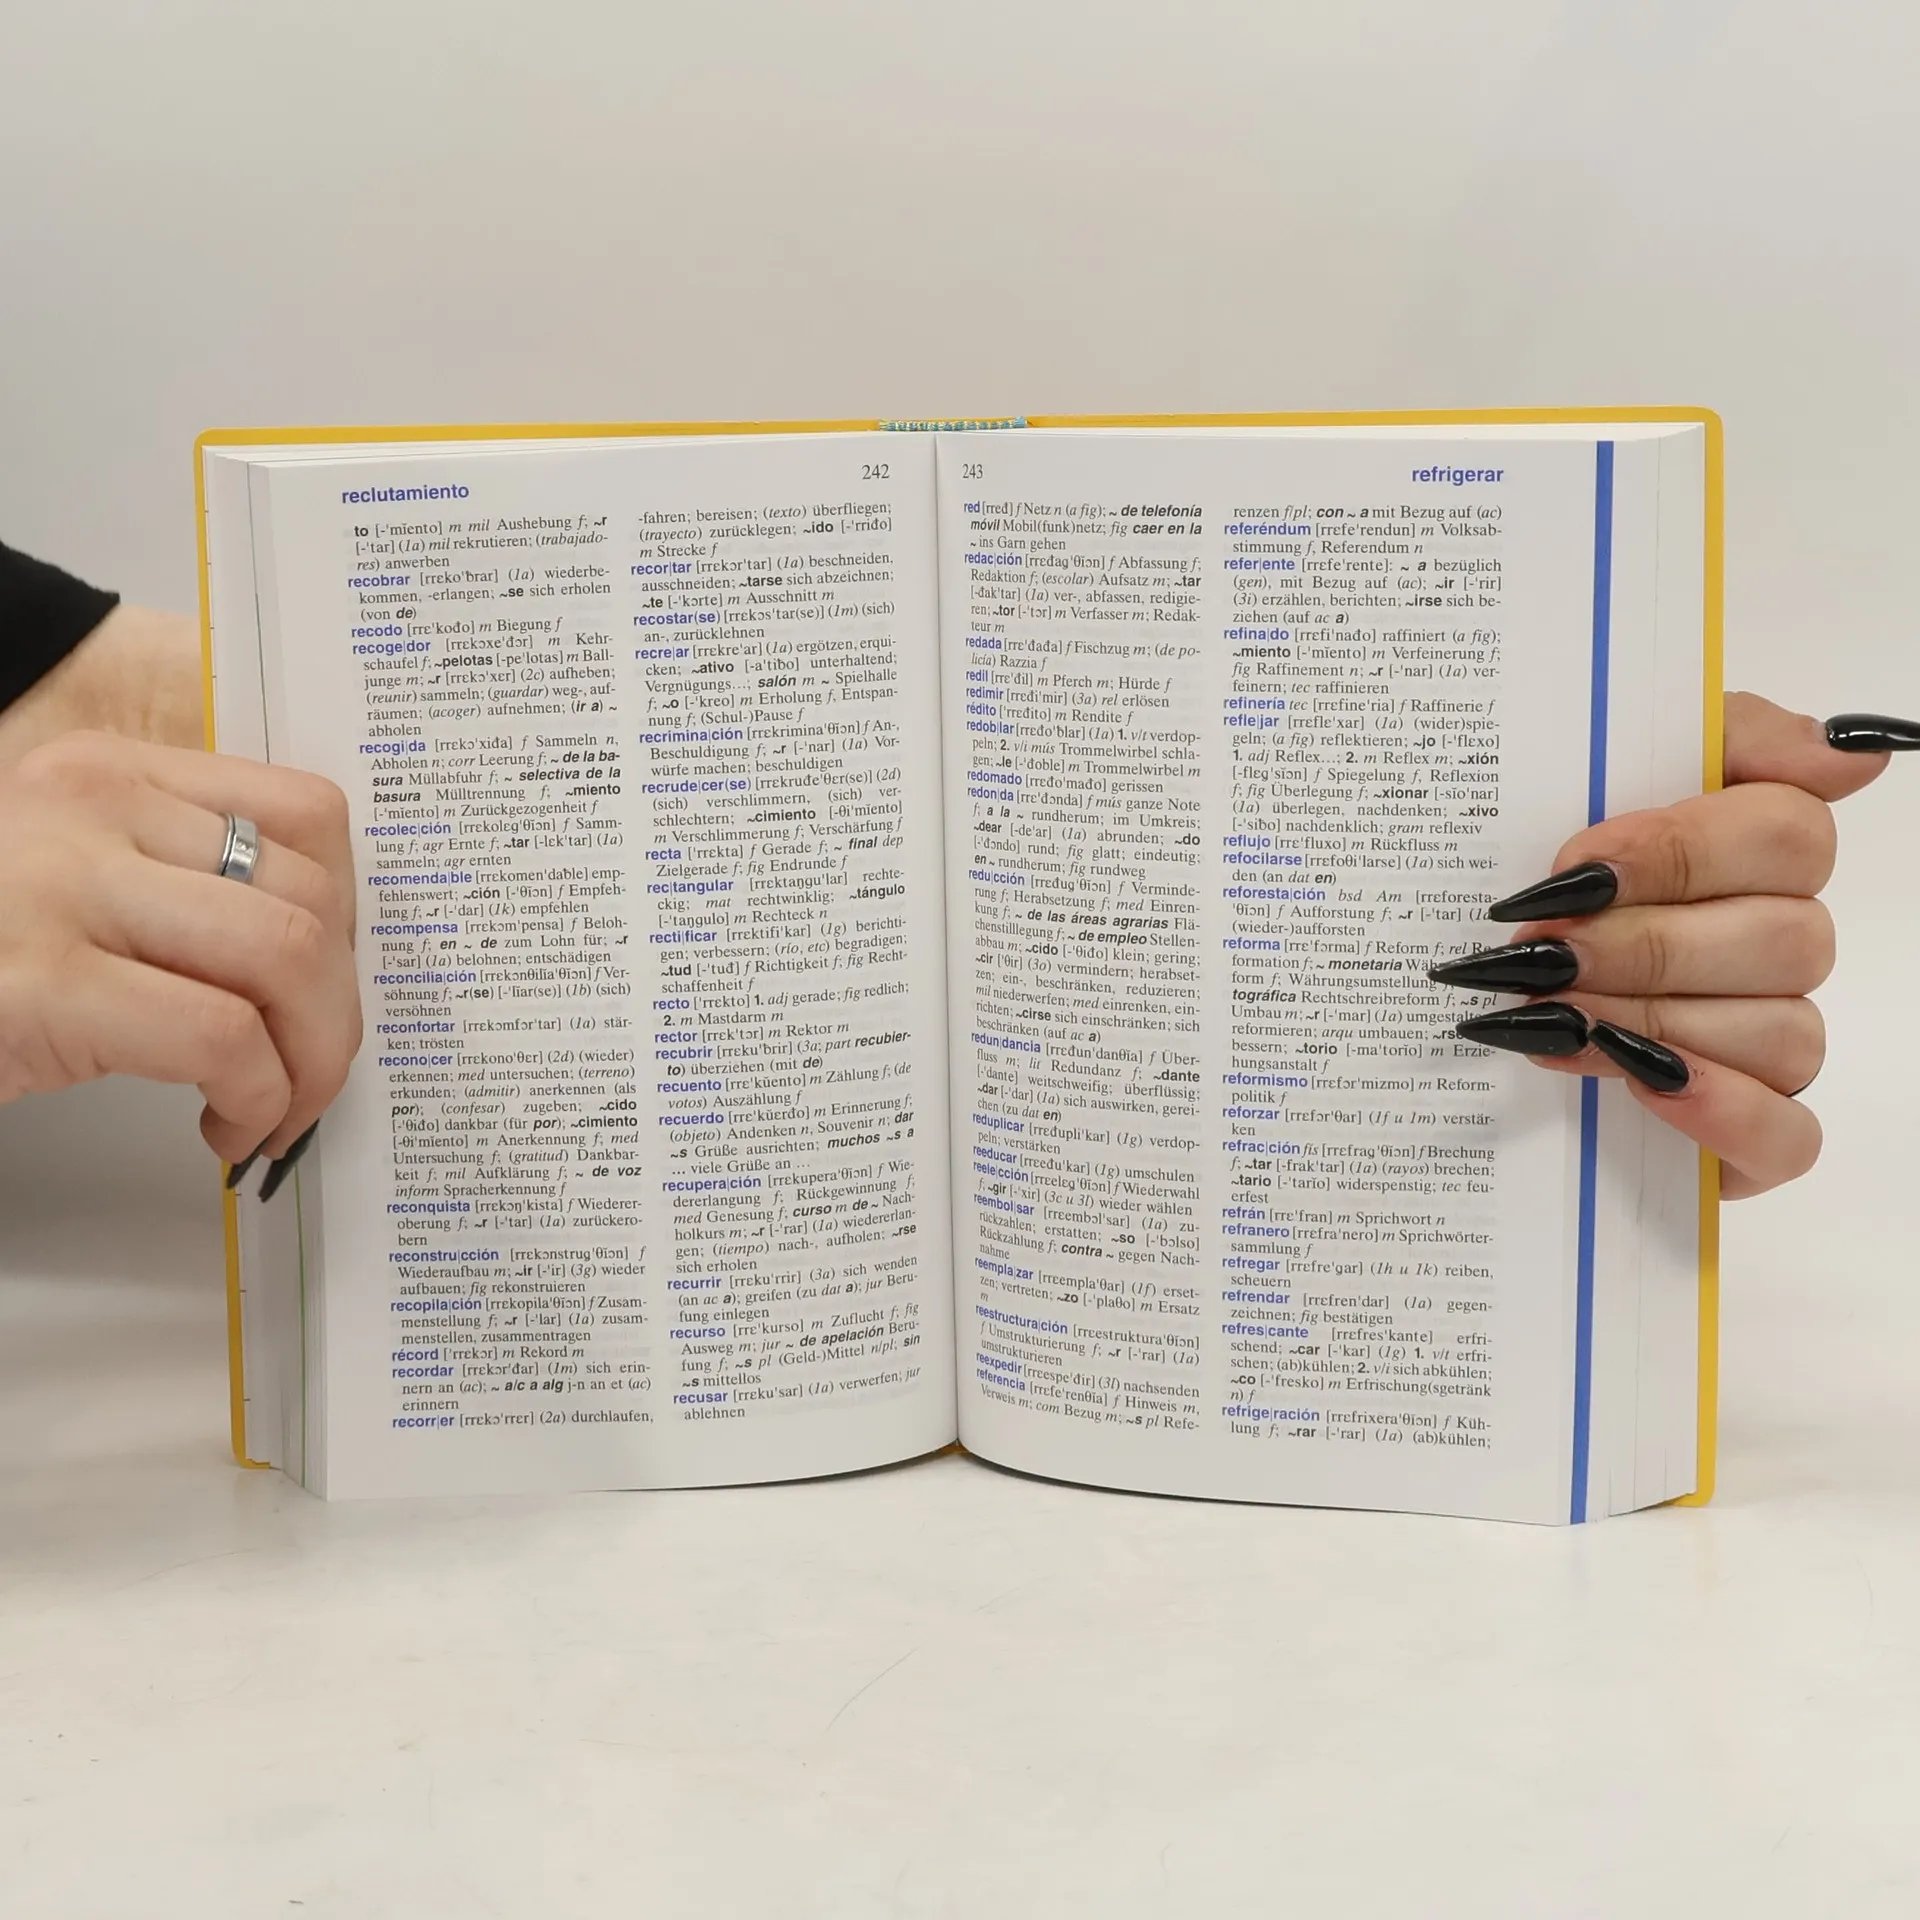 242
reclutamiento
to [-'mĭento] m mil Aushebung f; ~r
[-'tar] (1a) mil rekrutieren; (trabajado-
res) anwerben
recobrar [rrɛko'ƀrar] (1a) wiederbe-
kommen, -erlangen; ~se sich erholen
(von de)
recodo [rrɛ'kođo] m Biegung f
recoge|dor [rrɛkɔxe'đɔr] m Kehr-
schaufel f; ~pelotas [-pe'lotas] m Ball-
junge m; ~r [rrɛkɔ'xɛr] (2c) aufheben;
(reunir) sammeln; (guardar) weg-, auf-
räumen; (acoger) aufnehmen; (ir a) ~
abholen
recogi|da [rrɛkɔ'xiđa] f Sammeln n,
Abholen n; corr Leerung f; ~ de la ba-
sura Müllabfuhr f; ~ selectiva de la
basura Mülltrennung f; ~miento
[-'mĭento] m Zurückgezogenheit f
recolec|ción [rrɛkolɛg'θĭɔn] f Samm-
lung f; agr Ernte f; ~tar [-lɛk'tar] (1a)
sammeln; agr ernten
recomenda|ble [rrɛkomen'daƀle] emp-
fehlenswert; ~ción [-'θĭɔn] f Empfeh-
lung f; ~r [-'dar] (1k) empfehlen
recompensa [rrɛkɔm'pensa] f Beloh-
nung f; en ~ de zum Lohn für; ~r
[-'sar] (1a) belohnen; entschädigen
reconcilia|ción [rrɛkɔnθilĭa'θĭɔn] f Ver-
söhnung f; ~r(se) [-'lĭar(se)] (1b) (sich)
versöhnen
reconfortar [rrɛkɔmfɔr'tar] (1a) stär-
ken; trösten
recono|cer [rrɛkono'θɛr] (2d) (wieder)
erkennen; med untersuchen; (terreno)
erkunden; (admitir) anerkennen (als
por); (confesar) zugeben; ~cido
[-'θiđo] dankbar (für por); ~cimiento
[-θi'mĭento] m Anerkennung f; med
Untersuchung f; (gratitud) Dankbar-
keit f; mil Aufklärung f; ~ de voz
inform Spracherkennung f
reconquista [rrɛkɔŋ'kista] f Wiederer-
oberung f; ~r [-'tar] (1a) zurückero-
bern
reconstru|cción [rrɛkɔnstrug'θĭɔn] f
Wiederaufbau m; ~ir [-'ir] (3g) wieder
aufbauen; fig rekonstruieren
recopila|ción [rrɛkopila'θĭɔn] f Zusam-
menstellung f; ~r [-'lar] (1a) zusam-
menstellen, zusammentragen
récord ['rrɛkɔr] m Rekord m
recordar [rrɛkɔr'đar] (1m) sich erin-
nern an (ac); ~ a/c a alg j-n an et (ac)
erinnern
recorr|er [rrɛkɔ'rrɛr] (2a) durchlaufen,
-fahren; bereisen; (texto) überfliegen;
(trayecto) zurücklegen; ~ido [-'rriđo]
m Strecke f
recor|tar [rrɛkɔr'tar] (1a) beschneiden,
ausschneiden; ~tarse sich abzeichnen;
~te [-'kɔrte] m Ausschnitt m
recostar(se) [rrɛkɔs'tar(se)] (1m) (sich)
an-, zurücklehnen
recre|ar [rrɛkre'ar] (1a) ergötzen, erqui-
cken; ~ativo [-a'tiƀo] unterhaltend;
Vergnügungs...; salón m ~ Spielhalle
f; ~o [-'kreo] m Erholung f, Entspan-
nung f; (Schul-)Pause f
recrimina|ción [rrɛkrimina'θĭɔn] f An-,
Beschuldigung f; ~r [-'nar] (1a) Vor-
würfe machen; beschuldigen
recrude|cer(se) [rrɛkruđe'θɛr(se)] (2d)
(sich) verschlimmern, (sich) ver-
schlechtern; ~cimiento [-θi'mĭento]
m Verschlimmerung f; Verschärfung f
recta ['rrɛkta] f Gerade f; ~ final dep
Zielgerade f; fig Endrunde f
rec|tangular [rrɛktaŋgu'lar] rechte-
ckig; mat rechtwinklig; ~tángulo
[-'taŋgulo] m Rechteck n
recti|ficar [rrɛktifi'kar] (1g) berichti-
gen; verbessern; (río, etc) begradigen;
~tud [-'tuđ] f Richtigkeit f; fig Recht-
schaffenheit f
recto ['rrɛkto] 1. adj gerade; fig redlich;
2. m Mastdarm m
rector [rrɛk'tɔr] m Rektor m
recubrir [rrɛku'ƀrir] (3a; part recubier-
to) überziehen (mit de)
recuento [rrɛ'kŭento] m Zählung f; (de
votos) Auszählung f
recuerdo [rrɛ'kŭɛrđo] m Erinnerung f;
(objeto) Andenken n, Souvenir n; dar
~s Grüße ausrichten; muchos ~s a
... viele Grüße an ...
recupera|ción [rrɛkupera'θĭɔn] f Wie-
dererlangung f; Rückgewinnung f;
med Genesung f; curso m de ~ Nach-
holkurs m; ~r [-'rar] (1a) wiedererlan-
gen; (tiempo) nach-, aufholen; ~rse
sich erholen
recurrir [rrɛku'rrir] (3a) sich wenden
(an ac a); greifen (zu dat a); jur Beru-
fung einlegen
recurso [rrɛ'kurso] m Zuflucht f; fig
Ausweg m; jur ~ de apelación Beru-
fung f; ~s pl (Geld-)Mittel n/pl; sin
~s mittellos
recusar [rrɛku'sar] (1a) verwerfen; jur
ablehnen
243
refrigerar
red [rređ] f Netz n (a fig); ~ de telefonía
móvil Mobil(funk)netz; fig caer en la
~ ins Garn gehen
redac|ción [rrɛđag'θĭɔn] f Abfassung f;
Redaktion f; (escolar) Aufsatz m; ~tar
[-đak'tar] (1a) ver-, abfassen, redigie-
ren; ~tor [-'tɔr] m Verfasser m; Redak-
teur m
redada [rrɛ'đađa] f Fischzug m; (de po-
licía) Razzia f
redil [rrɛ'đil] m Pferch m; Hürde f
redimir [rrɛđi'mir] (3a) rel erlösen
rédito ['rrɛđito] m Rendite f
redob|lar [rrɛđo'ƀlar] (1a) 1. v/t verdop-
peln; 2. v/i mús Trommelwirbel schla-
gen; ~le [-'đoble] m Trommelwirbel m
redomado [rrɛđo'mađo] gerissen
redon|da [rrɛ'đɔnda] f mús ganze Note
f; a la ~ rundherum; im Umkreis;
~dear [-de'ar] (1a) abrunden; ~do
[-'đɔndo] rund; fig glatt; eindeutig;
en ~ rundherum; fig rundweg
redu|cción [rrɛđug'θĭɔn] f Verminde-
rung f; Herabsetzung f; med Einren-
kung f; ~ de las áreas agrarias Flä-
chenstilllegung f; ~ de empleo Stellen-
abbau m; ~cido [-'θiđo] klein; gering;
~cir [-'θir] (3o) vermindern; herabset-
zen; ein-, beschränken, reduzieren;
mil niederwerfen; med einrenken, ein-
richten; ~cirse sich einschränken; sich
beschränken (auf ac a)
redun|dancia [rrɛđun'danθĭa] f Über-
fluss m; lit Redundanz f; ~dante
[-'dante] weitschweifig; überflüssig;
~dar [-'dar] (1a) sich auswirken, gerei-
chen (zu dat en)
reduplicar [rrɛđupli'kar] (1g) verdop-
peln; verstärken
reeducar [rrɛeđu'kar] (1g) umschulen
reele|cción [rrɛelɛg'θĭɔn] f Wiederwahl
f; ~gir [-'xir] (3c u 3l) wieder wählen
reembol|sar [rrɛembɔl'sar] (1a) zu-
rückzahlen; erstatten; ~so [-'bɔlso]
Rückzahlung f; contra ~ gegen Nach-
nahme
reempla|zar [rrɛempla'θar] (1f) erset-
zen; vertreten; ~zo [-'plaθo] m Ersatz
m
reestructura|ción [rrɛestruktura'θĭɔn]
f Umstrukturierung f; ~r [-'rar] (1a)
umstrukturieren
reexpedir [rrɛespe'đir] (3l) nachsenden
referencia [rrɛfe'renθĭa] f Hinweis m,
Verweis m; com Bezug m; ~s pl Refe-
renzen f/pl; con ~ a mit Bezug auf (ac)
referéndum [rrɛfe'rendun] m Volksab-
stimmung f, Referendum n
refer|ente [rrɛfe'rente]: ~ a bezüglich
(gen), mit Bezug auf (ac); ~ir [-'rir]
(3i) erzählen, berichten; ~irse sich be-
ziehen (auf ac a)
refina|do [rrɛfi'nađo] raffiniert (a fig);
~miento [-'mĭento] m Verfeinerung f;
fig Raffinement n; ~r [-'nar] (1a) ver-
feinern; tec raffinieren
refinería tec [rrɛfine'ria] f Raffinerie f
refle|jar [rrɛflɛ'xar] (1a) (wider)spie-
geln; (a fig) reflektieren; ~jo [-'flɛxo]
1. adj Reflex...; 2. m Reflex m; ~xión
[-flɛg'sĭɔn] f Spiegelung f, Reflexion
f; fig Überlegung f; ~xionar [-sĭo'nar]
(1a) überlegen, nachdenken; ~xivo
[-'siƀo] nachdenklich; gram reflexiv
reflujo [rrɛ'fluxo] m Rückfluss m
refocilarse [rrɛfoθi'larse] (1a) sich wei-
den (an dat en)
reforesta|ción bsd Am [rrɛforesta-
'θĭɔn] f Aufforstung f; ~r [-'tar]
(wieder-)aufforsten
reforma [rrɛ'fɔrma] f Reform f; rel
formation f; ~ monetaria
form f; Währungsumstellung
tográfica Rechtschreibreform f; ~s pl
Umbau m; ~r [-'mar] (1a)
reformieren; arqu umbauen;
bessern; ~torio [-ma'torĭo] m Erzie-
hungsanstalt f
reformismo [rrɛfɔr'mizmo] m Reform-
politik f
reforzar [rrɛfɔr'θar] (1f u 1m) verstär-
ken
refrac|ción fís [rrɛfrag'θĭɔn] f Brechung
f; ~tar [-frak'tar] (1a) (rayos) brechen;
~tario [-'tarĭo] widerspenstig; tec feu-
erfest
refrán [rrɛ'fran] m Sprichwort n
refranero [rrɛfra'nero] m Sprichwörter-
sammlung f
refregar [rrɛfre'gar] (1h u 1k) reiben,
scheuern
refrendar [rrɛfren'dar] (1a) gegen-
zeichnen; fig bestätigen
refres|cante [rrɛfres'kante] erfri-
schend; ~car [-'kar] (1g) 1. v/t erfri-
schen; (ab)kühlen; 2. v/i sich abkühlen;
~co [-'fresko] m Erfrischung(sgetränk
n) f
refrige|ración [rrɛfrixera'θĭɔn] f Küh-
lung f; ~rar [-'rar] (1a) (ab)kühlen;